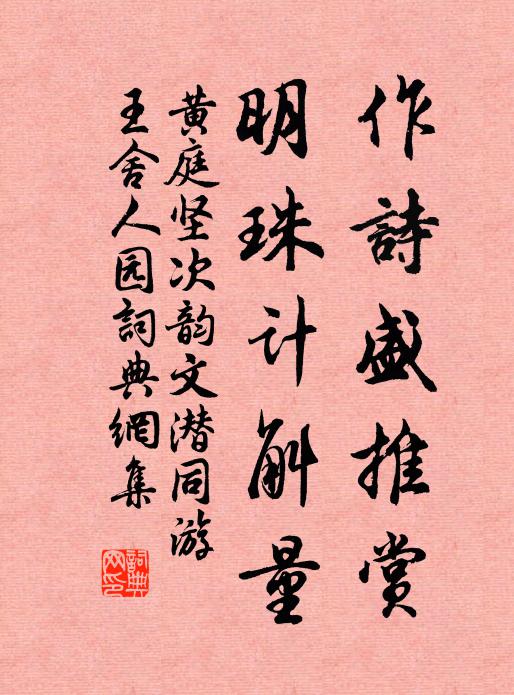 作詩盛推赏
明珠计斛量
黄庭坚次韵文潜同游
王舍人园詞典網集
詞典
网印